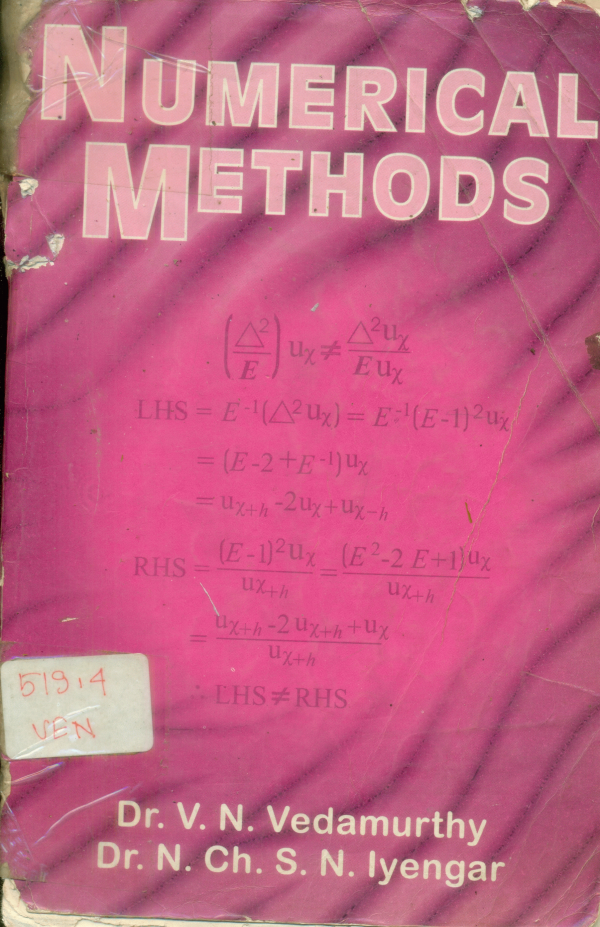 NUMERICAL
METHODS
(△²/E) uχ ≠ △²uχ/E uχ
LHS = E⁻¹(△²uχ) = E⁻¹(E-1)²uχ
= (E-2+E⁻¹)uχ
= uχ+h -2uχ+uχ-h
RHS = (E-1)²uχ/uχ+h = (E²-2E+1)uχ/uχ+h
= uχ+h -2uχ+h +uχ/uχ+h
∴ LHS ≠ RHS
519.4
VEN
Dr. V. N. Vedamurthy
Dr. N. Ch. S. N. Iyengar